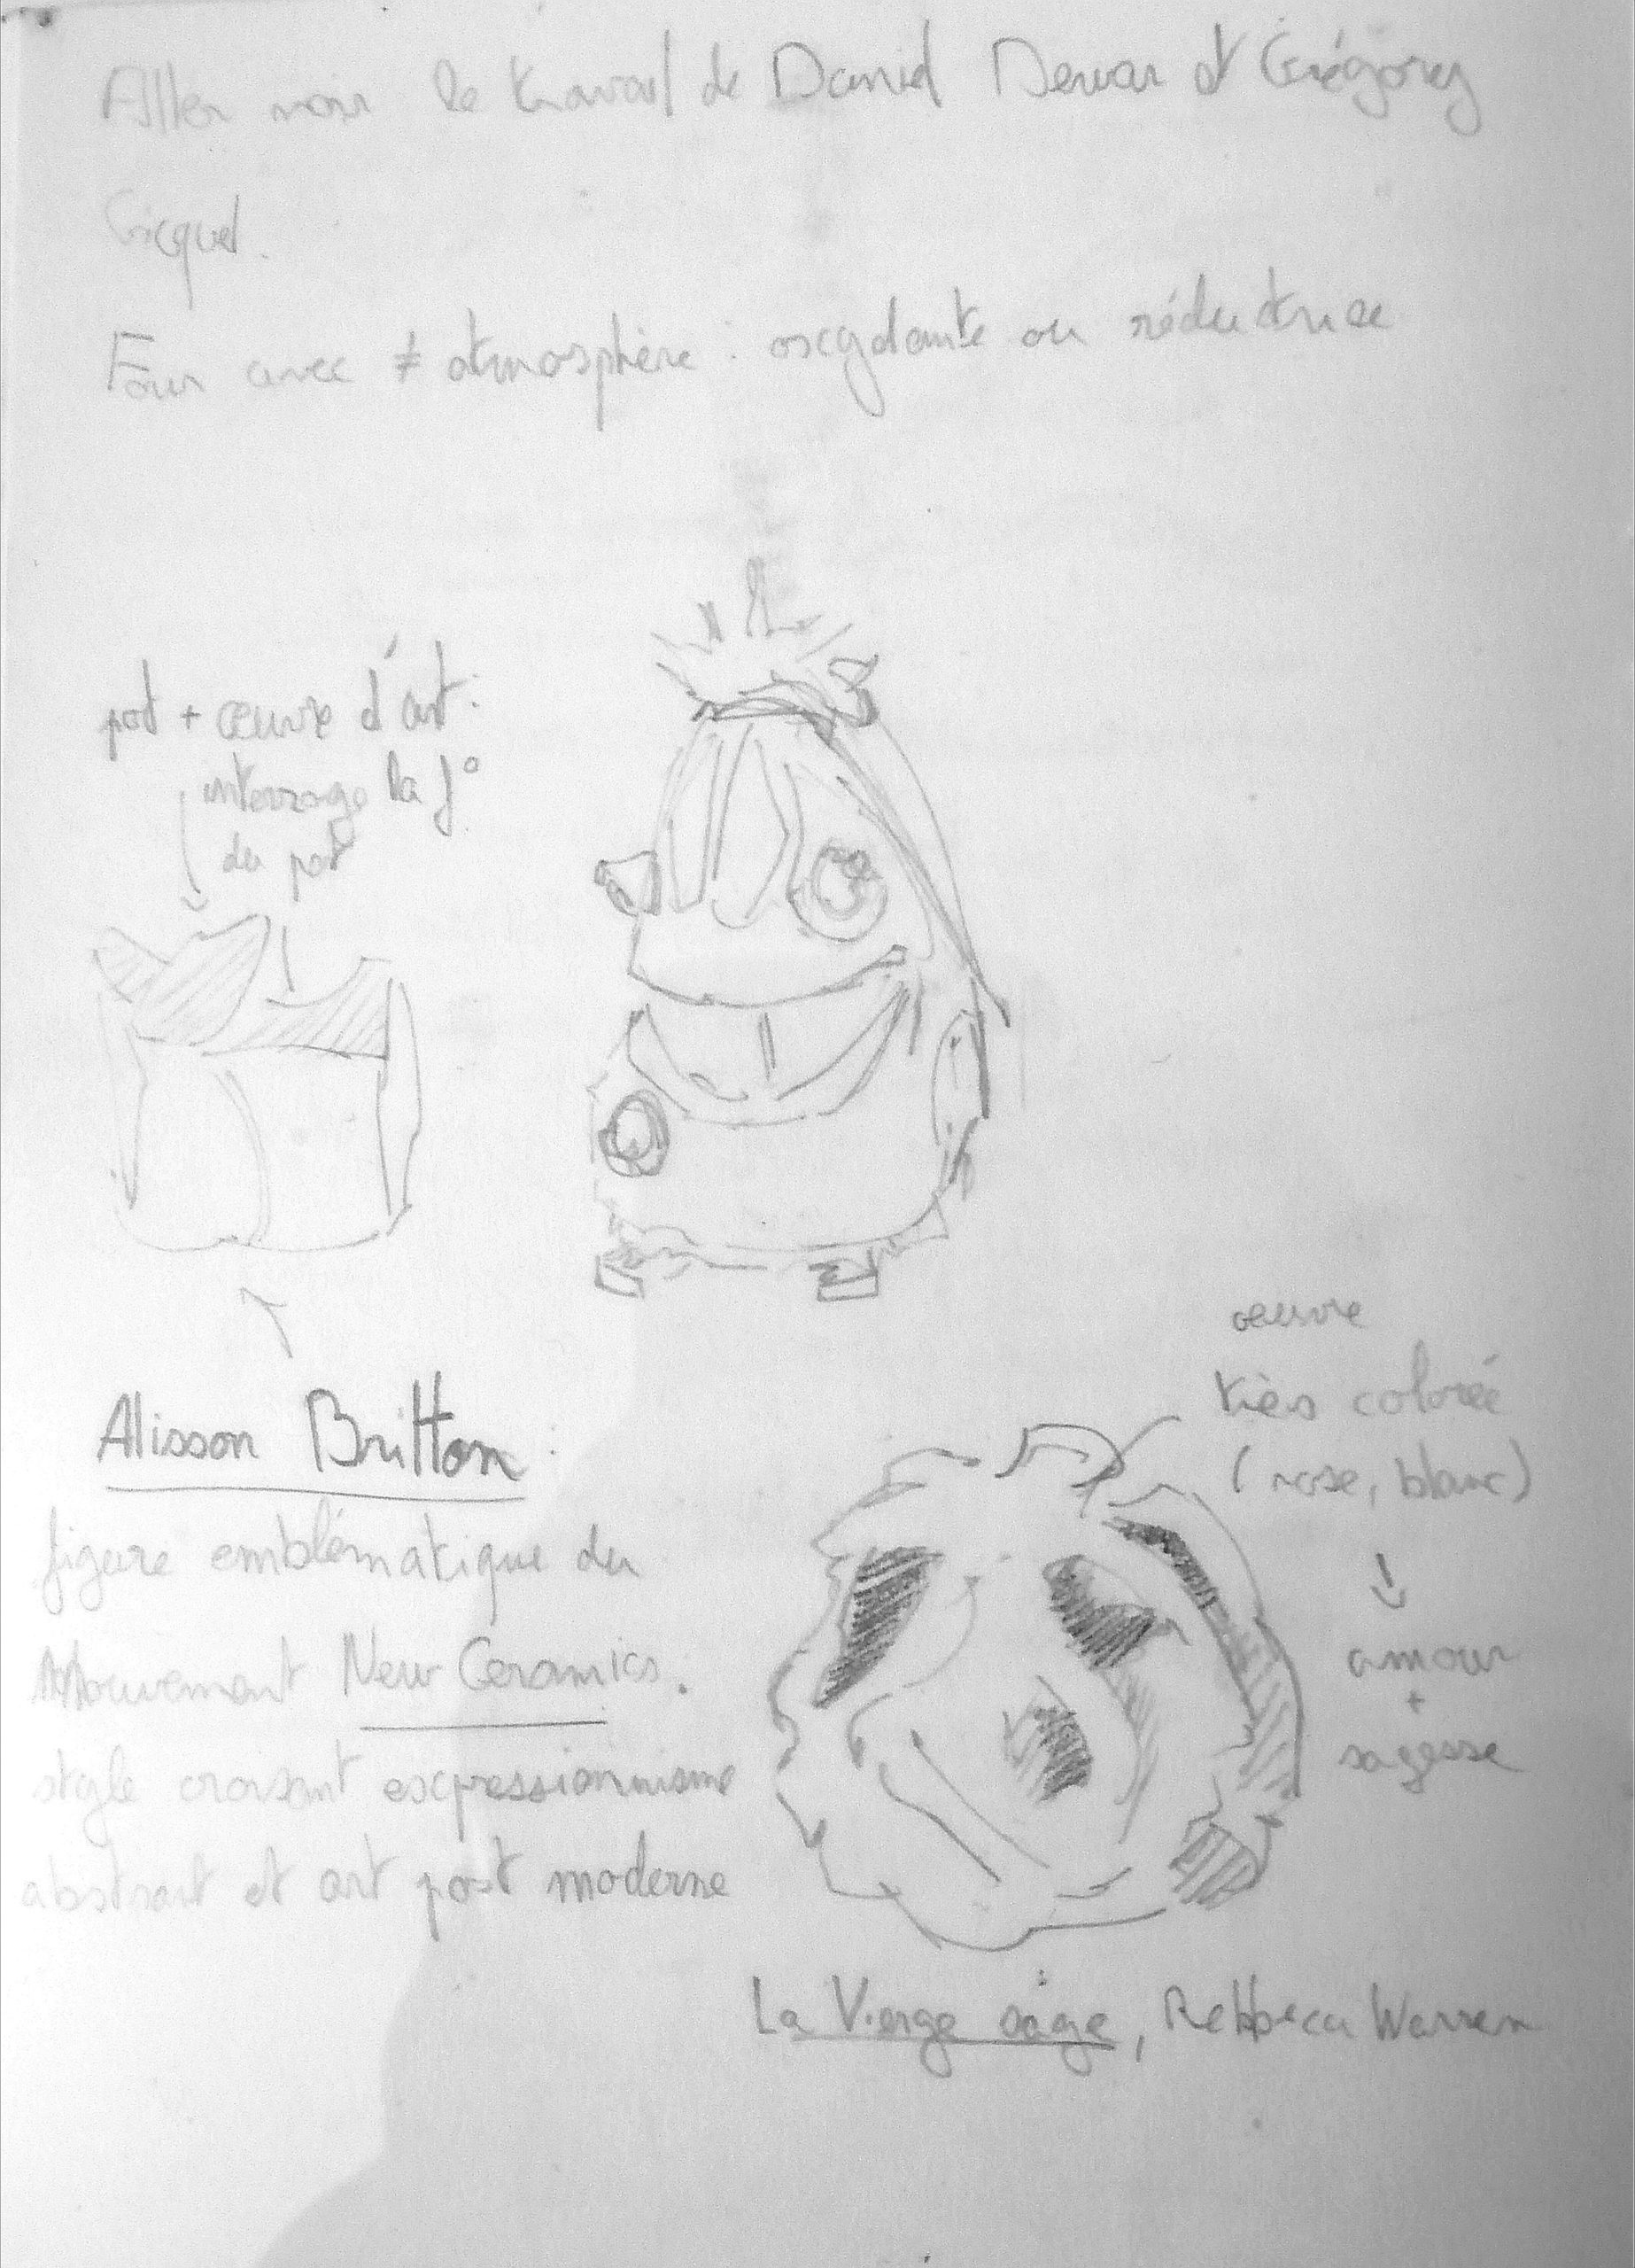 Aller voir le travail de Daniel Dewar et Grégory
Gicquel.
Four avec ≠ atmosphère : oxydante ou réductrice
pot + œuvre d'art :
interroge la f°
du pot
Alisson Britton :
figure emblématique du
Mouvement New Ceramics.
style croisant expressionnisme
abstrait et art post moderne
œuvre
très colorée
(rose, blanc)
↓
amour
+
sagesse
La Vierge sage, Rebbeca Warren